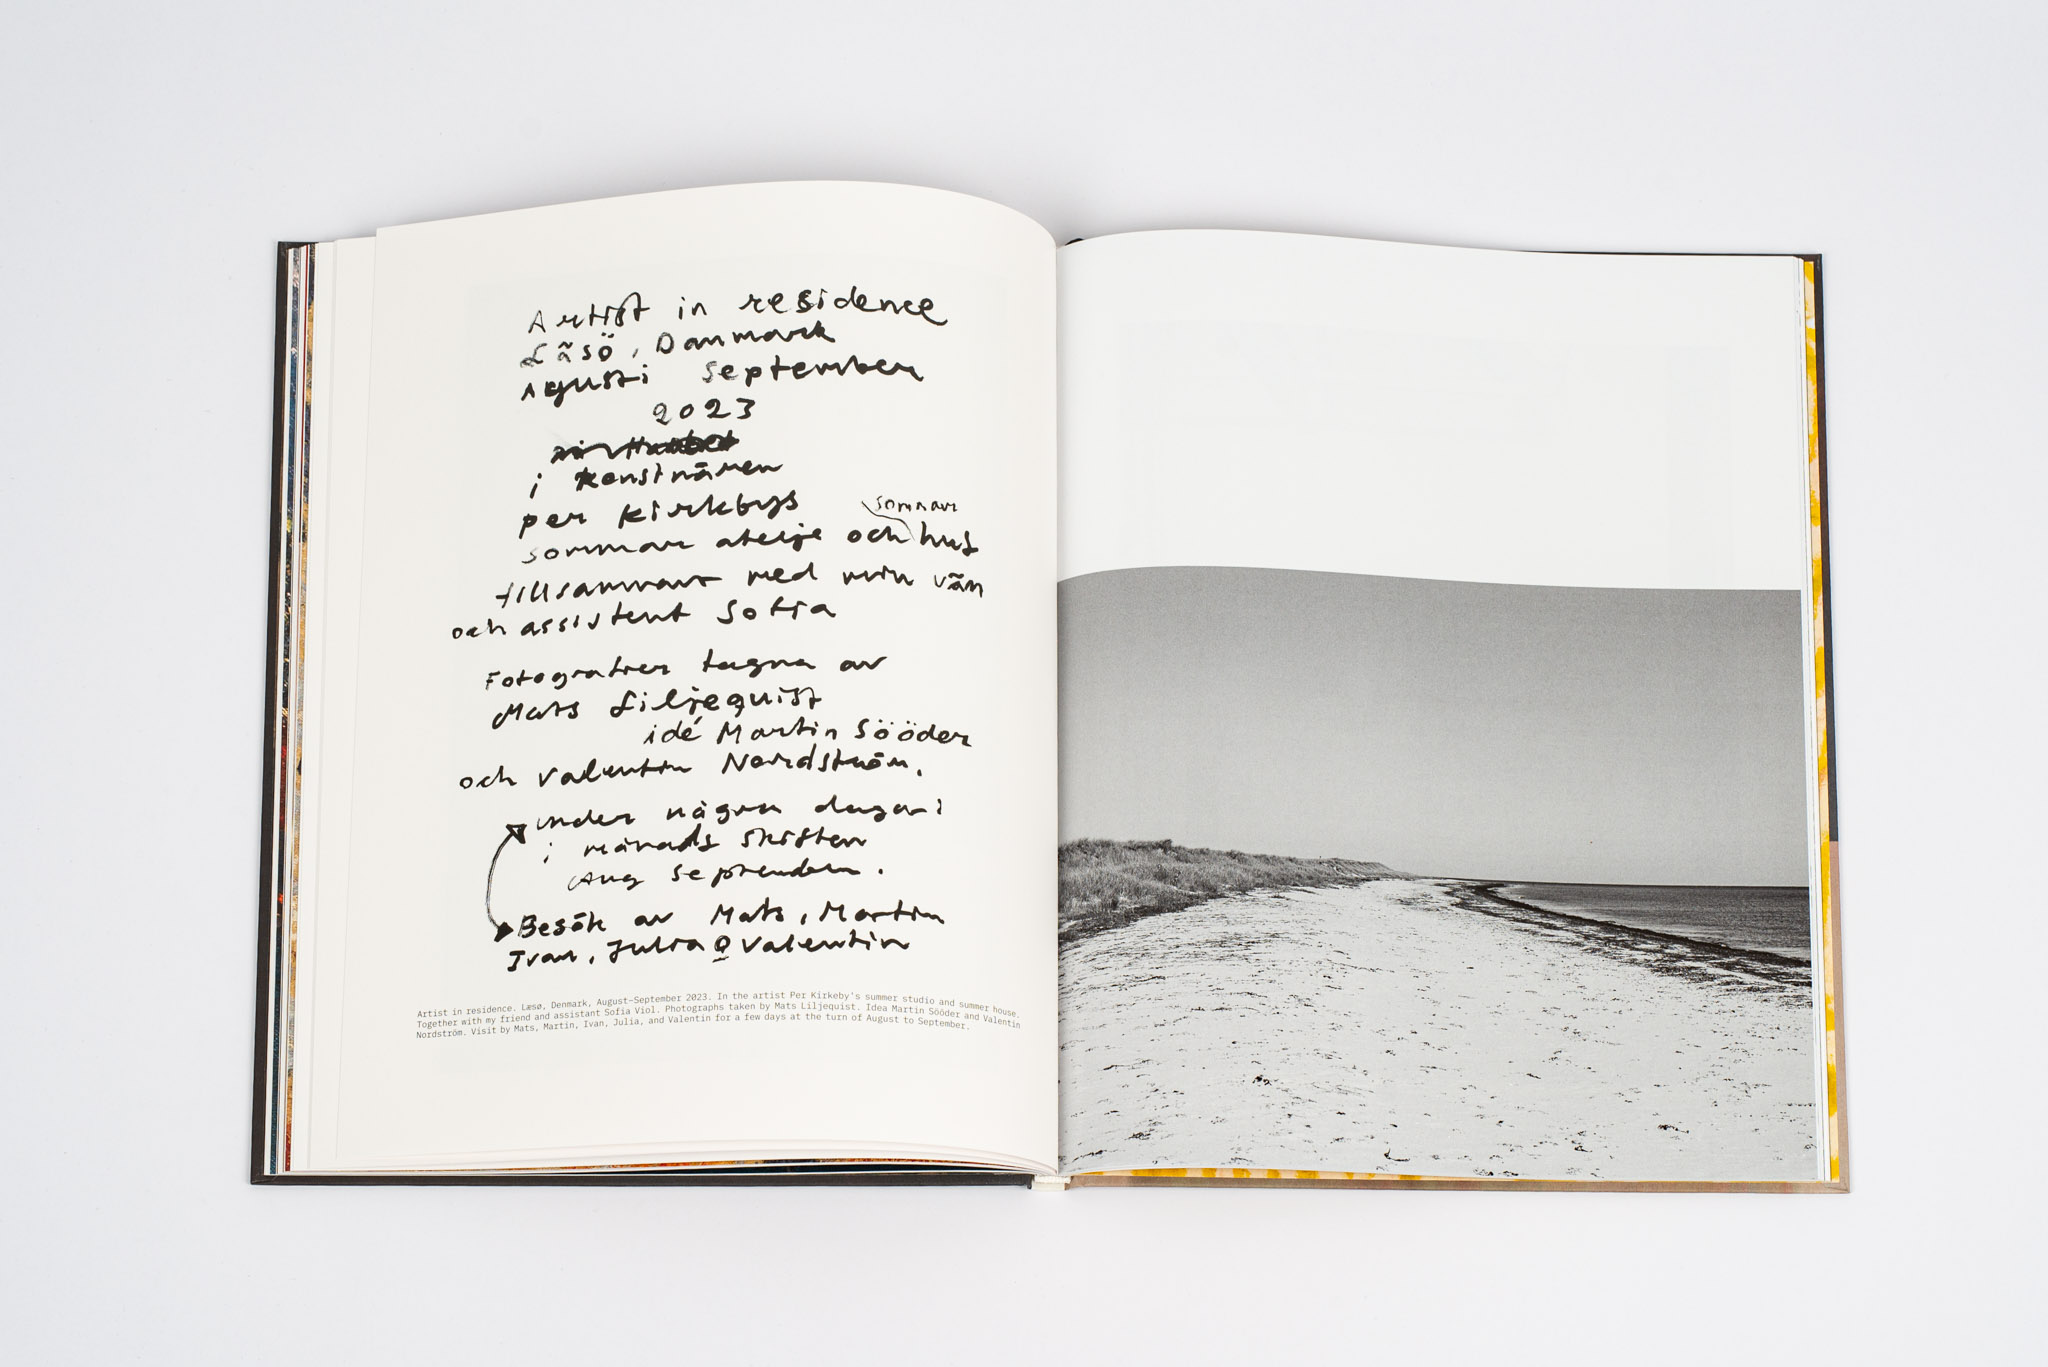 Artist in residence
Läsö, Danmark
Agusti September
2023
i konstnären
per Kirkebys
sommar
sommar atelje och hus
tillsammans med min vän
och assistent Sofia
Fotografier tagna av
Mats Liljequist
idé Martin Sööder
och Valentin Nordström.
under några dagar i
i månads skiften
Aug September.
Besök av Mats, Martin
Ivan, Julia o Valentin
Artist in residence. Læsø, Denmark, August–September 2023. In the artist Per Kirkeby's summer studio and summer house.
Together with my friend and assistant Sofia Viol. Photographs taken by Mats Liljequist. Idea Martin Sööder and Valentin
Nordström. Visit by Mats, Martin, Ivan, Julia, and Valentin for a few days at the turn of August to September.